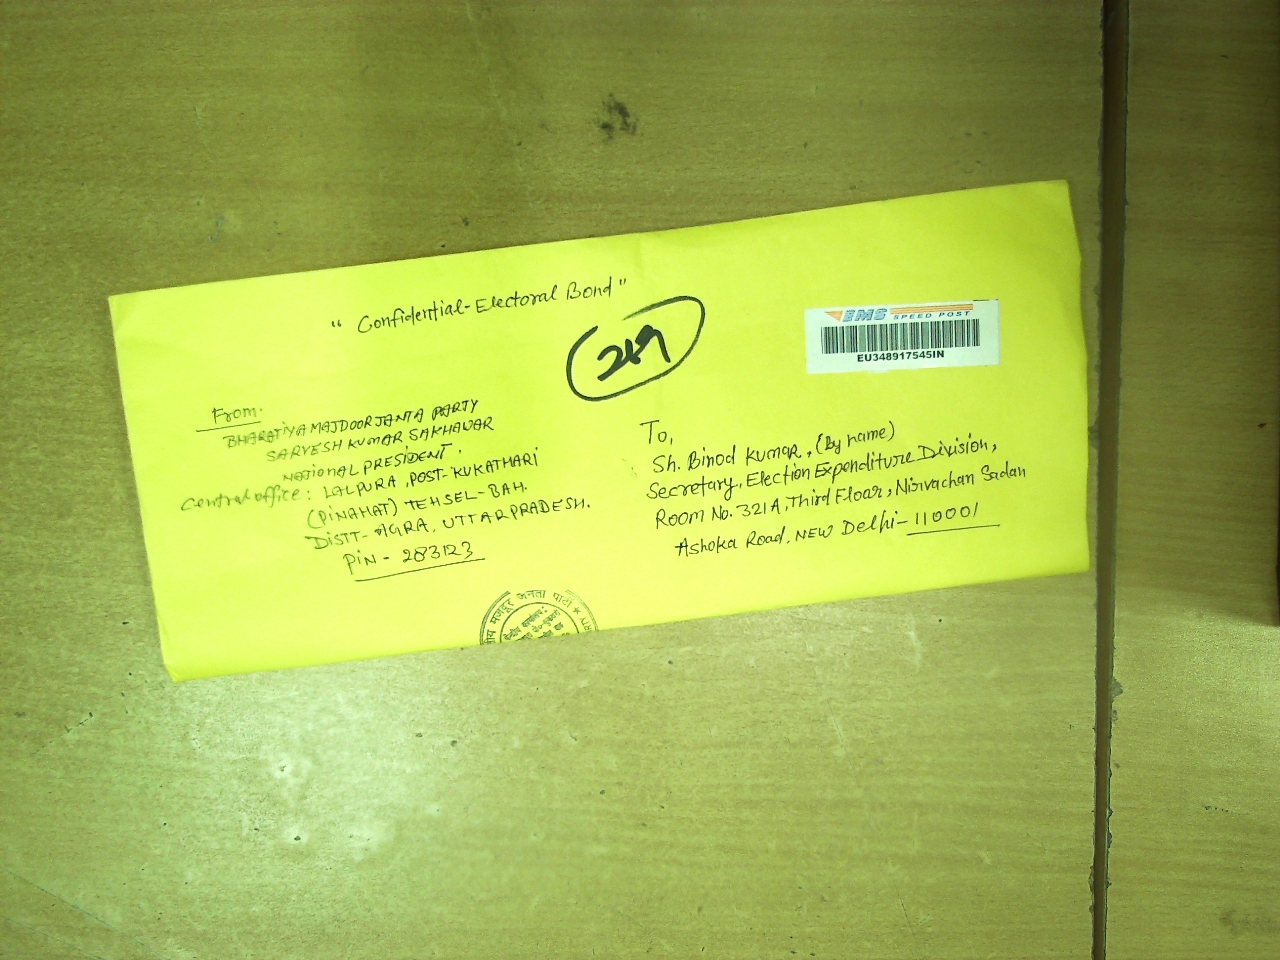 "Confidential-Electoral Bond"
269
EMS SPEED POST
EU348917545IN
From.
BHARATIYA MAJDOOR JANTA PARTY
SARVESH KUMAR SAKHAWAR
NATIONAL PRESIDENT.
Central office: LALPURA, POST-KUKATHARI
(PINAHAT) TEHSEL-BAH.
DISTT-AGRA, UTTAR PRADESH.
PIN - 283123
To,
Sh. Binod Kumar, (By name)
Secretary, Election Expenditure Division,
Room No. 321A, Third Floor, Nirvachan Sadan
Ashoka Road, NEW Delhi-110001
मजदूर जनता पार्टी